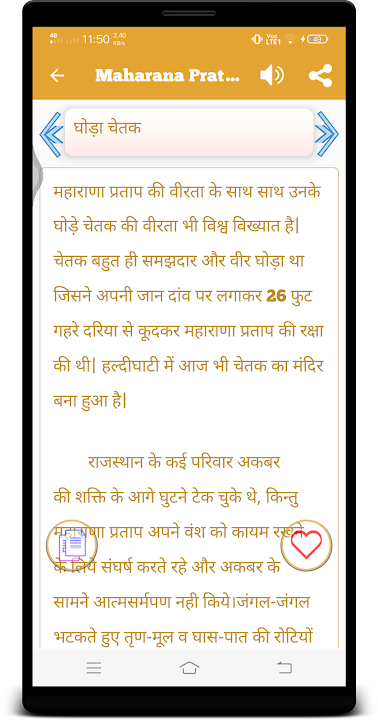 4G 11:50 2.40 KB/s VoLTE1 49
Maharana Prat...
घोड़ा चेतक
महाराणा प्रताप की वीरता के साथ साथ उनके
घोड़े चेतक की वीरता भी विश्व विख्यात है|
चेतक बहुत ही समझदार और वीर घोड़ा था
जिसने अपनी जान दांव पर लगाकर 26 फुट
गहरे दरिया से कूदकर महाराणा प्रताप की रक्षा
की थी| हल्दीघाटी में आज भी चेतक का मंदिर
बना हुआ है|
राजस्थान के कई परिवार अकबर
की शक्ति के आगे घुटने टेक चुके थे, किन्तु
प्रताप अपने वंश को कायम
संघर्ष करते रहे और अकबर के
सामने आत्मसर्मपण नही किये।जंगल-जंगल
भटकते हुए तृण-मूल व घास-पात की रोटियों